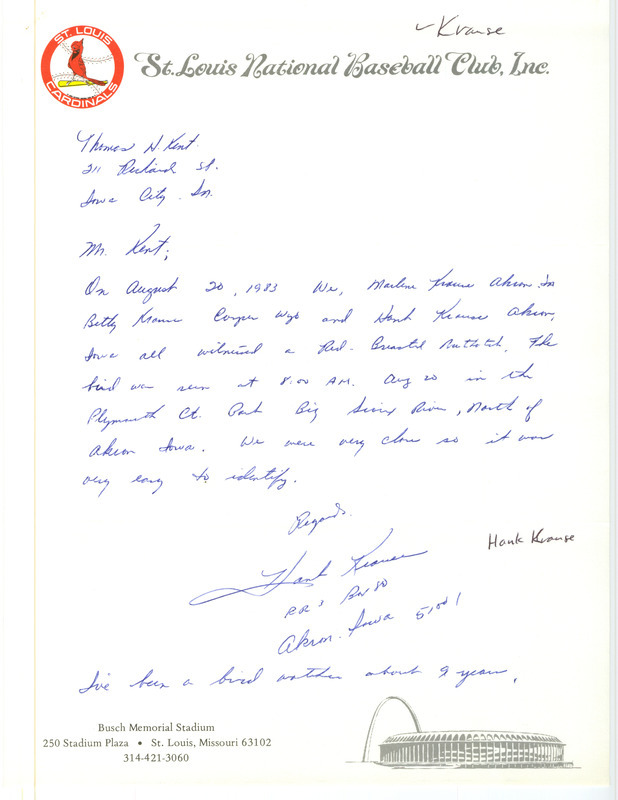 ✓ Krause
ST. LOUIS
CARDINALS
St. Louis National Baseball Club, Inc.
Thomas H. Kent
211 Richard St.
Iowa City Ia.
Mr. Kent;
On August 20, 1983 We, Marlene Krause Akron Ia
Betty Krause Casper Wyo and Hank Krause Akron,
Iowa all witnessed a Red-Breasted Nuthatch. The
bird was seen at 8:00 AM. Aug 20 in the
Plymouth Ct. Park Big Sioux River, North of
Akron Iowa. We were very close so it was
very easy to identify.
Regards
Hank Krause
Hank Krause
RR 3 Box 80
Akron. Iowa 51001
I've been a bird watcher about 9 years.
Busch Memorial Stadium
250 Stadium Plaza • St. Louis, Missouri 63102
314-421-3060